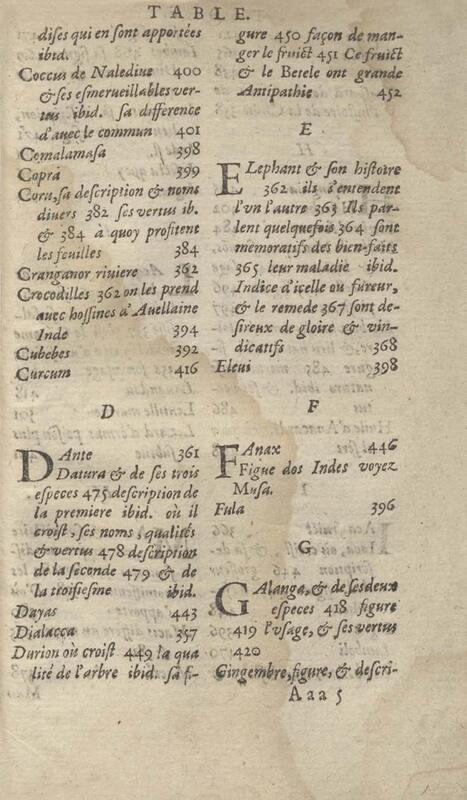 TABLE.
dises qui en sont apportées
ibid.
Coccus de Naledive 400
& ses esmerueillables ver-
tus ibid. sa difference
d'auec le commun 401
Comalamasa 398
Copra 399
Coru, sa description & noms
diuers 382 ses vertus ib.
& 384 à quoy profitent
les feuilles 384
Cranganor riuiere 362
Crocodilles 362 on les prend
auec hossines d'Auellaine
Inde 394
Cubebes 392
Curcum 416
D
DAnte 361
Datura & de ses trois
especes 475 description de
la premiere ibid. où il
croist, ses noms, qualités
& vertus 478 description
de la seconde 479 & de
la troisiesme ibid.
Dayas 443
Dialacca 357
Durion où croist 449 la qua
lité de l'arbre ibid. sa fi-
gure 450 façon de man-
ger le fruict 451 Ce fruict
& le Betele ont grande
Antipathie 452
E
ELephant & son histoire
362 ils s'entendent
l'vn l'autre 363 Ils par-
lent quelquefois 364 sont
memoratifs des bien-faits
365 leur maladie ibid.
Indice d'icelle ou fureur,
& le remede 367 sont de-
sireux de gloire & vin-
dicatifs 368
Eleui 398
F
FAnax 446
Figue dos Indes voyez
Musa.
Fula 396
G
GAlanga, & de ses deux
especes 418 figure
419 l'vsage, & ses vertus
420
Gingembre, figure, & descri-
Aaa 5